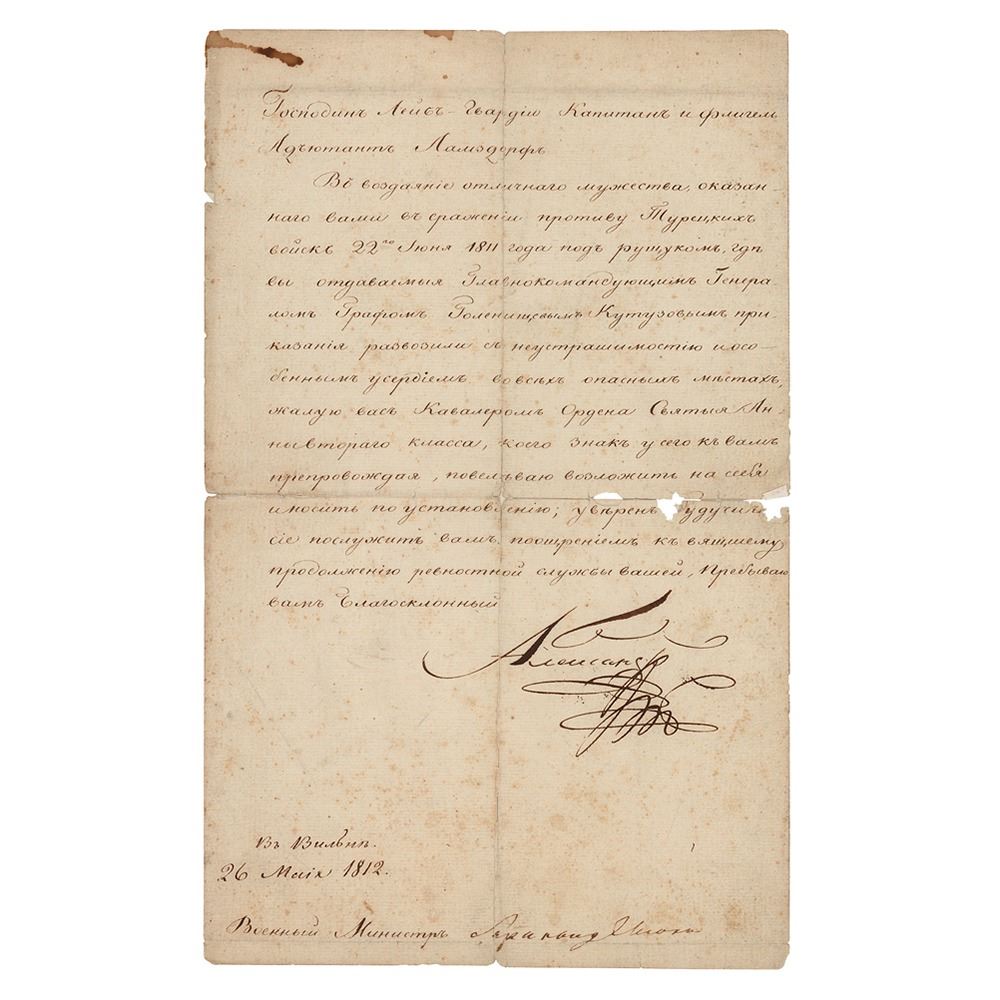 Господинъ Лейбъ-Гвардіи Капитанъ и Флигель
Адъютантъ Ламздорфъ
Въ воздаяніе отличнаго мужества, оказан-
наго вами въ сраженіи противу Турецкихъ
войскъ 22го Іюня 1811 года подъ рущукомъ, гдѣ
вы отдаваемыя Главнокомандующимъ Генера-
ломъ Графомъ Голенищевымъ Кутузовымъ при-
казанія развозили съ неустрашимостію и осо-
беннымъ усердіемъ во всѣхъ опасныхъ мѣстахъ,
жалую васъ Кавалеромъ Ордена Святыя Ан-
ны втораго класса, коего знакъ у сего къ вамъ
препровождая, повелѣваю возложить на себя
и носить по установленію; увѣренъ будучи
сіе послужитъ вамъ поощреніемъ къ вящшему
продолженію ревностной службы вашей, Пребываю
вамъ благосклонный
Александръ
Въ Вильнѣ.
26 Маія 1812.
Военный Министръ